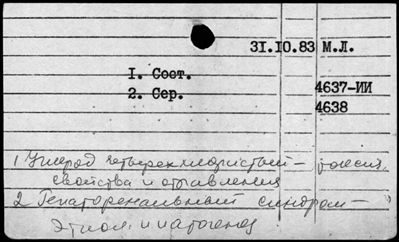 31.10.83 М.Л.
1. Сост.
2. Сер. 4637-ИИ
4638
1 Углерод четыреххлористый – токсич.
свойства и отравления
2 Гепаторенальный синдром –
этиол. и патогенез